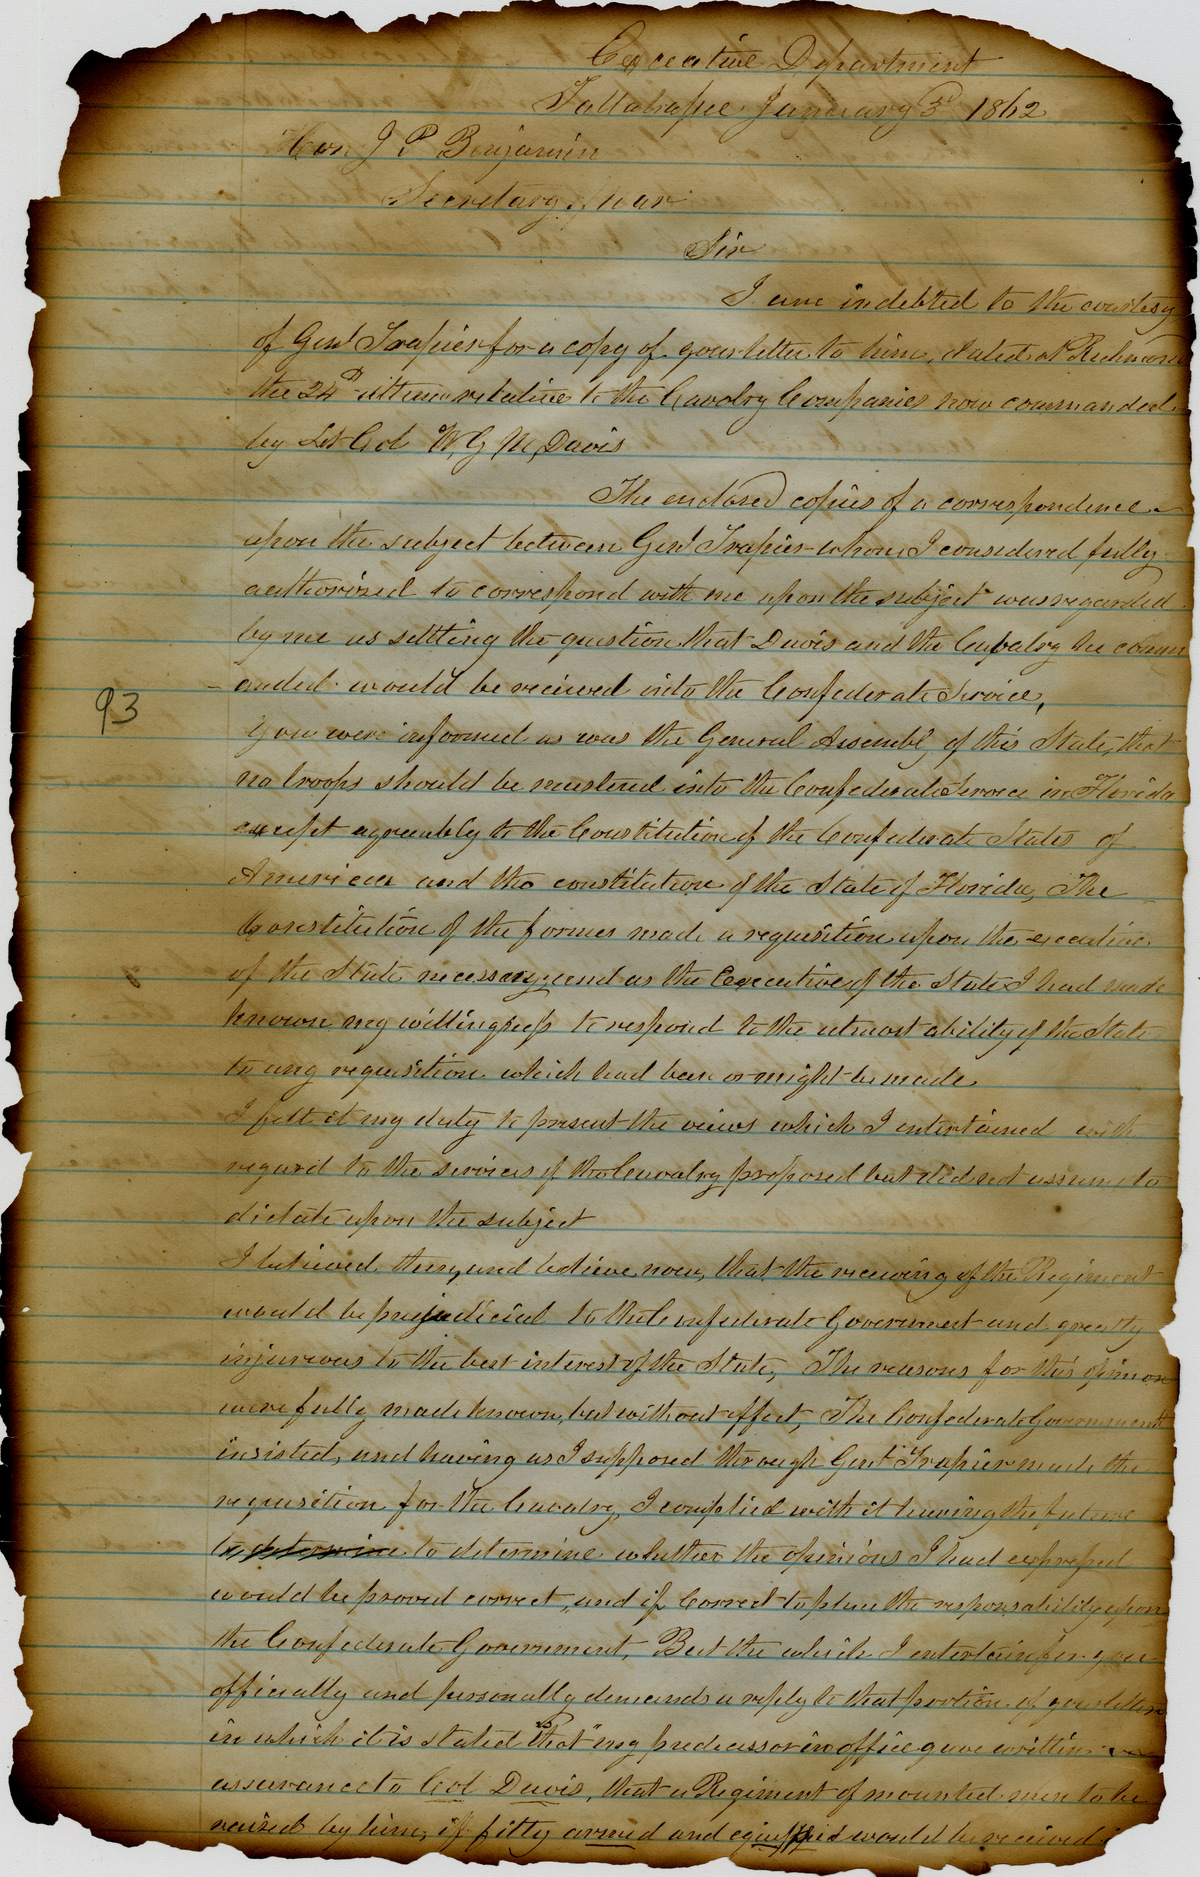 Executive Department
Tallahassee January 3d 1862
Hon J P Benjamin
Secretary of War
Sir
I am indebted to the courtesy
of Genl Trapier for a copy of your letter to him, dated at Richmond
the 24th ultimo relative to the Cavalry Companies now commanded
by Lt Col W, G M, Davis
The enclosed copies of a correspondence
upon the subject between Genl Trapier whom I considered fully
authorised to correspond with me upon the subject was regarded
by me as settling the question that Davis and the Cavalry he comm
anded would be received into the Confederate Service,
You were informed as was the General Assembly of this State, that
no troops should be mustered into the Confederate Service in Florida
except agreeably to the Constitution of the Confederate States of
America and the constitution of the State of Florida, The
Constitution of the former made a requisition upon the executive
of the State necessary, and as the Executive of the State I had made
known my willingness to respond to the utmost ability of the State
to any requisition which had been or might be made.
I felt it my duty to present the views which I entertained with
regard to the services of the Cavalry proposed but did not assume to
dictate upon the subject
I believed then, and believe now, that the receiving of the Regiment
would be prejudicial to the Confederate Government and greatly
injurious to the best interest of the State, The reasons for this opinion
were fully made known, but without effect, The Confederate Government
insisted, and having as I supposed through Genl Trapier made the
requisition for the Cavalry, I complied with it leaving the future
to determine to determine whether the opinions I had expressed
would be proved correct, and if Correct to place the responsability upon
the Confederate Government, But the which I entertain for you
officially and personally demands a reply to that portion of your letter
in which it is stated that "my predecessor in office gave written
assurance to Col Davis, that a Regiment of mounted men to be
raised by him, if fitly armed and equipped would be received
93